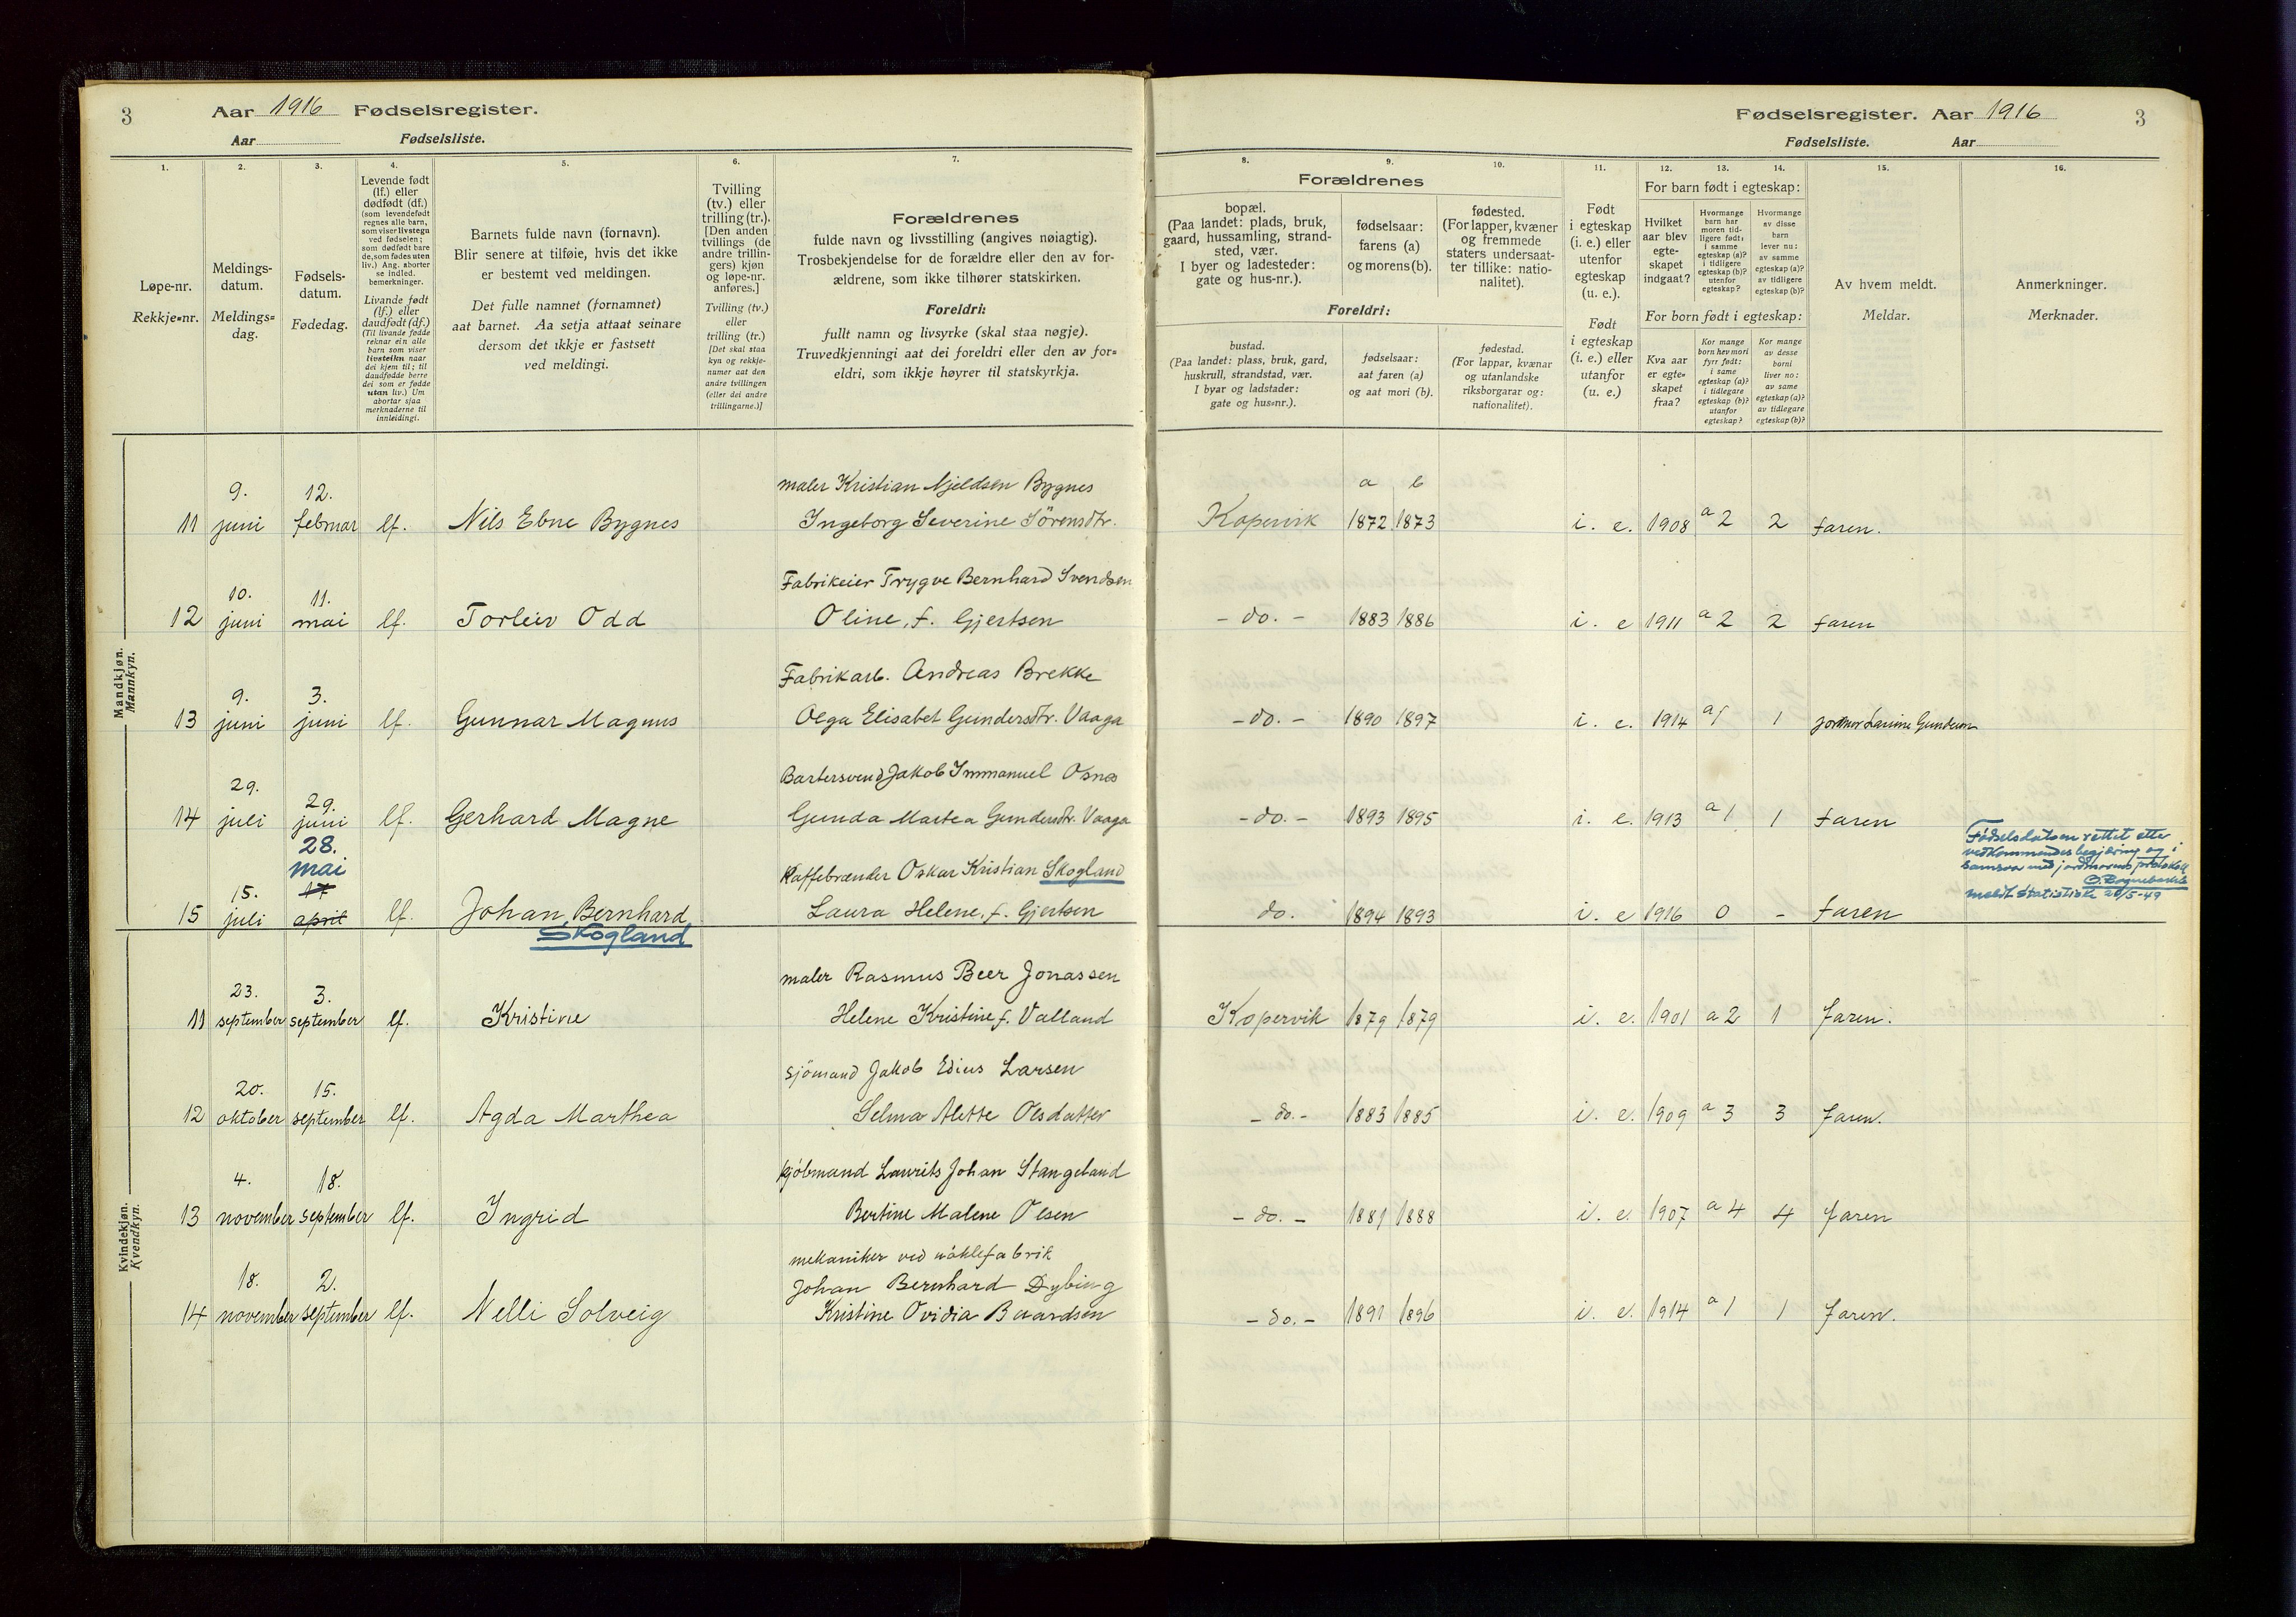 3
Aar 1916 Fødselsregister.
Aar Fødselsliste.
1.
2.
3.
4.
5.
6.
7.
Løpe-nr.
Rekkje=nr.
Meldings-
datum.
Meldings=
dag.
Fødsels-
datum.
Fødedag.
Levende født
(lf.) eller
dødfødt (df.)
(som levendefødt
regnes alle barn,
som viser livstegn
ved fødselen;
som dødfødt bare
de, som fødes uten
liv.) Ang. aborter
se indled.
bemerkninger.
Livande født
(lf.) eller
daudfødt (df.)
(Til livande fødde
reknar ein alle
barn som viser
livsteikn naar
dei kjem til; til
daudfødde berre
dei som er fødde
utan liv.) Um
abortar sjaa
merknaderne til
innleidingi.
Barnets fulde navn (fornavn).
Blir senere at tilføie, hvis det ikke
er bestemt ved meldingen.
Det fulle namnet (fornamnet)
aat barnet. Aa setja attaat seinare
dersom det ikkje er fastsett
ved meldingi.
Tvilling
(tv.) eller
trilling (tr.).
[Den anden
tvillings (de
andre trillin-
gers) kjøn
og løpe-nr.
anføres.]
Tvilling (tv.)
eller
trilling (tr.)
[Det skal staa
kyn og rekkje-
numer aat den
andre tvillingen
(eller dei andre
trillingarne.)]
Forældrenes
fulde navn og livsstilling (angives nøiagtig).
Trosbekjendelse for de forældre eller den av for-
ældrene, som ikke tilhører statskirken.
Foreldri:
fullt namn og livsyrke (skal staa nøgje).
Truvedkjenningi aat dei foreldri eller den av for=
eldri, som ikkje høyrer til statskyrkja.
Mandkjøn.
Mannkyn.
9. 12. maler Kristian Njeldsen Bygnes
11 juni februar lf. Nils Ebne Bygnes Ingeborg Severine Sörensdtr.
10. 11. Fabrikeier Trygve Bernhard Svendsen
12 juni mai lf. Torleiv Odd Oline, f. Gjertsen
9. 3. Fabrikarb. Andreas Brekke
13 juni juni lf. Gunnar Magnus Olga Elisabet Gundersdtr. Vaaga
29. 29. Jakob Immanuel Osnes
14 juli juni lf. Gerhard Magne Gunda Martea Gundersdtr. Vaaga
28.
mai
15. 17 Kaffebrænder Oskar Kristian Skogland
15 juli april lf. Johan Bernhard Laura Helene, f. Gjertsen
Skogland
Kvindekjøn.
Kvendkyn.
23. 3. maler Rasmus Beer Jonassen
11 september september lf. Kristine Helene Kristine f. Valland
20. 15. sjömand Jakob Edius Larsen
12 oktober september lf. Agda Marthea Selma Alette Olsdatter
4. 18. kjöbmand Laurits Johan Stangeland
13 november september lf. Ingrid Bertine Malene Olsen
mekaniker ved nåklefabrik
18. 2. Johan Bernhard Dybing
14 november september lf. Nelli Solveig Kristine Ovidia Baardsen
Fødselsregister. Aar 1916
3
Fødselsliste. Aar
8.
9.
10.
11.
12.
13.
14.
15.
16.
Forældrenes
bopæl.
(Paa landet: plads, bruk,
gaard, hussamling, strand-
sted, vær.
I byer og ladesteder:
gate og hus-nr.).
fødselsaar:
farens (a)
og morens (b).
fødested.
(For lapper, kvæner
og fremmede
staters undersaat-
ter tillike: natio-
nalitet).
Foreldri:
bustad.
(Paa landet: plass, bruk, gard,
huskrull, strandstad, vær.
I byar og ladstader:
gate og hus=nr.).
fødselsaar:
aat faren (a)
og aat mori (b).
fødestad.
(For lappar, kvænar
og utanlandske
riksborgarar og:
nationalitet).
Født
i egteskap
(i. e.) eller
utenfor
egteskap
(u. e.).
Født
i egteskap
(i. e.) eller
utanfor
(u. e.)
For barn født i egteskap:
Hvilket
aar blev
egte-
skapet
indgaat?
Hvormange
barn har
moren tid-
ligere født:
i samme
egteskap (a)?
i tidligere
egteskap (b)?
utenfor
egteskap?
Hvormange
av disse
barn
lever nu:
av samme
egteskap (a)?
av tidligere
egteskap (b)?
For born født i egteskap:
Kva aar
er egte=
skapet
fraa?
Kor mange
born hev mori
fyrr født:
i same
egteskap (a)?
i tidlegare
egteskap (b)?
utanfor
egteskap?
Kor mange
av desse
borni
liver no:
av same
egteskap (a)?
av tidlegare
egteskap (b)?
Av hvem meldt.
Meldar.
Anmerkninger.
Merknader.
a b
Kopervik 1872 1873 i. e. 1908 a 2 2 Faren.
- do. - 1883 1886 i. e 1911 a 2 2 Faren
- do. - 1890 1897 i. e. 1914 a 1 1 jormor Gundersen
- do. - 1893 1895 i. e. 1913 a 1 1 Faren
Fødselsdatoen rettet etter
vedkommendes begjæring og i
samsvar med jordmorens protokoll
meldt Statistisk 20/5-49
do. 1894 1893 i. e 1916 0 - Faren
Kopervik 1879 1879 i. e. 1901 a 2 1 faren.
- do. - 1883 1885 i. e. 1909 a 3 3 faren.
- do. - 1881 1888 i. e. 1907 a 4 4 faren
- do. - 1891 1896 i. e. 1914 a 1 1 faren.